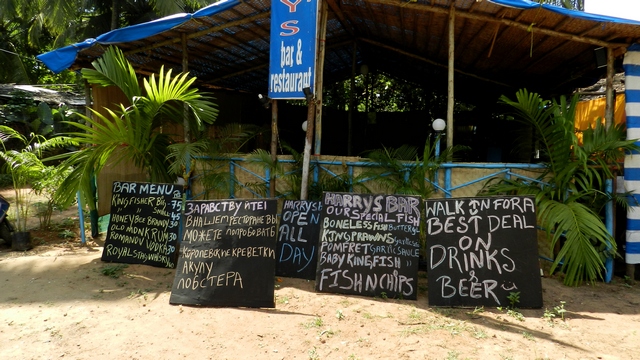 YS
bar &
restaurant
BAR MENU
KINGFISHER Big 75
Small 45
HONEY BEE BRANDY 30
OLD MONK RUM 30
ROMANOV VODKA 30
ROYAL STAG WHISKY
ЗДРАВСТВУЙТЕ!
В НАШЕМ РЕСТОРАНЕ ВЫ
МОЖЕТЕ ПОПРОБОВАТЬ
КОРОЛЕВСКИЕ КРЕВЕТКИ
АКУЛУ
ЛОБСТЕРА
HARRYS
OPEN
ALL
DAY
HARRYS BAR
OUR SPECIAL FISH
BONELESS FISH
KINGSPRAWNS
POMFRET GARLIC SAUCE
BABY KINGFISH
FISH N CHIPS
WALK IN FOR A
BEST DEAL
ON
DRINKS
&
BEER